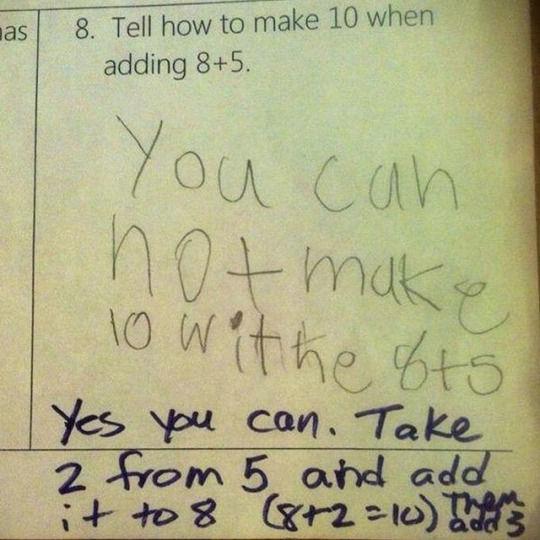 as
8. Tell how to make 10 when
adding 8+5.
You can
not make
10 witthe 8+5
Yes you can. Take
2 from 5 and add
it to 8 (8+2=10) Then
add 3